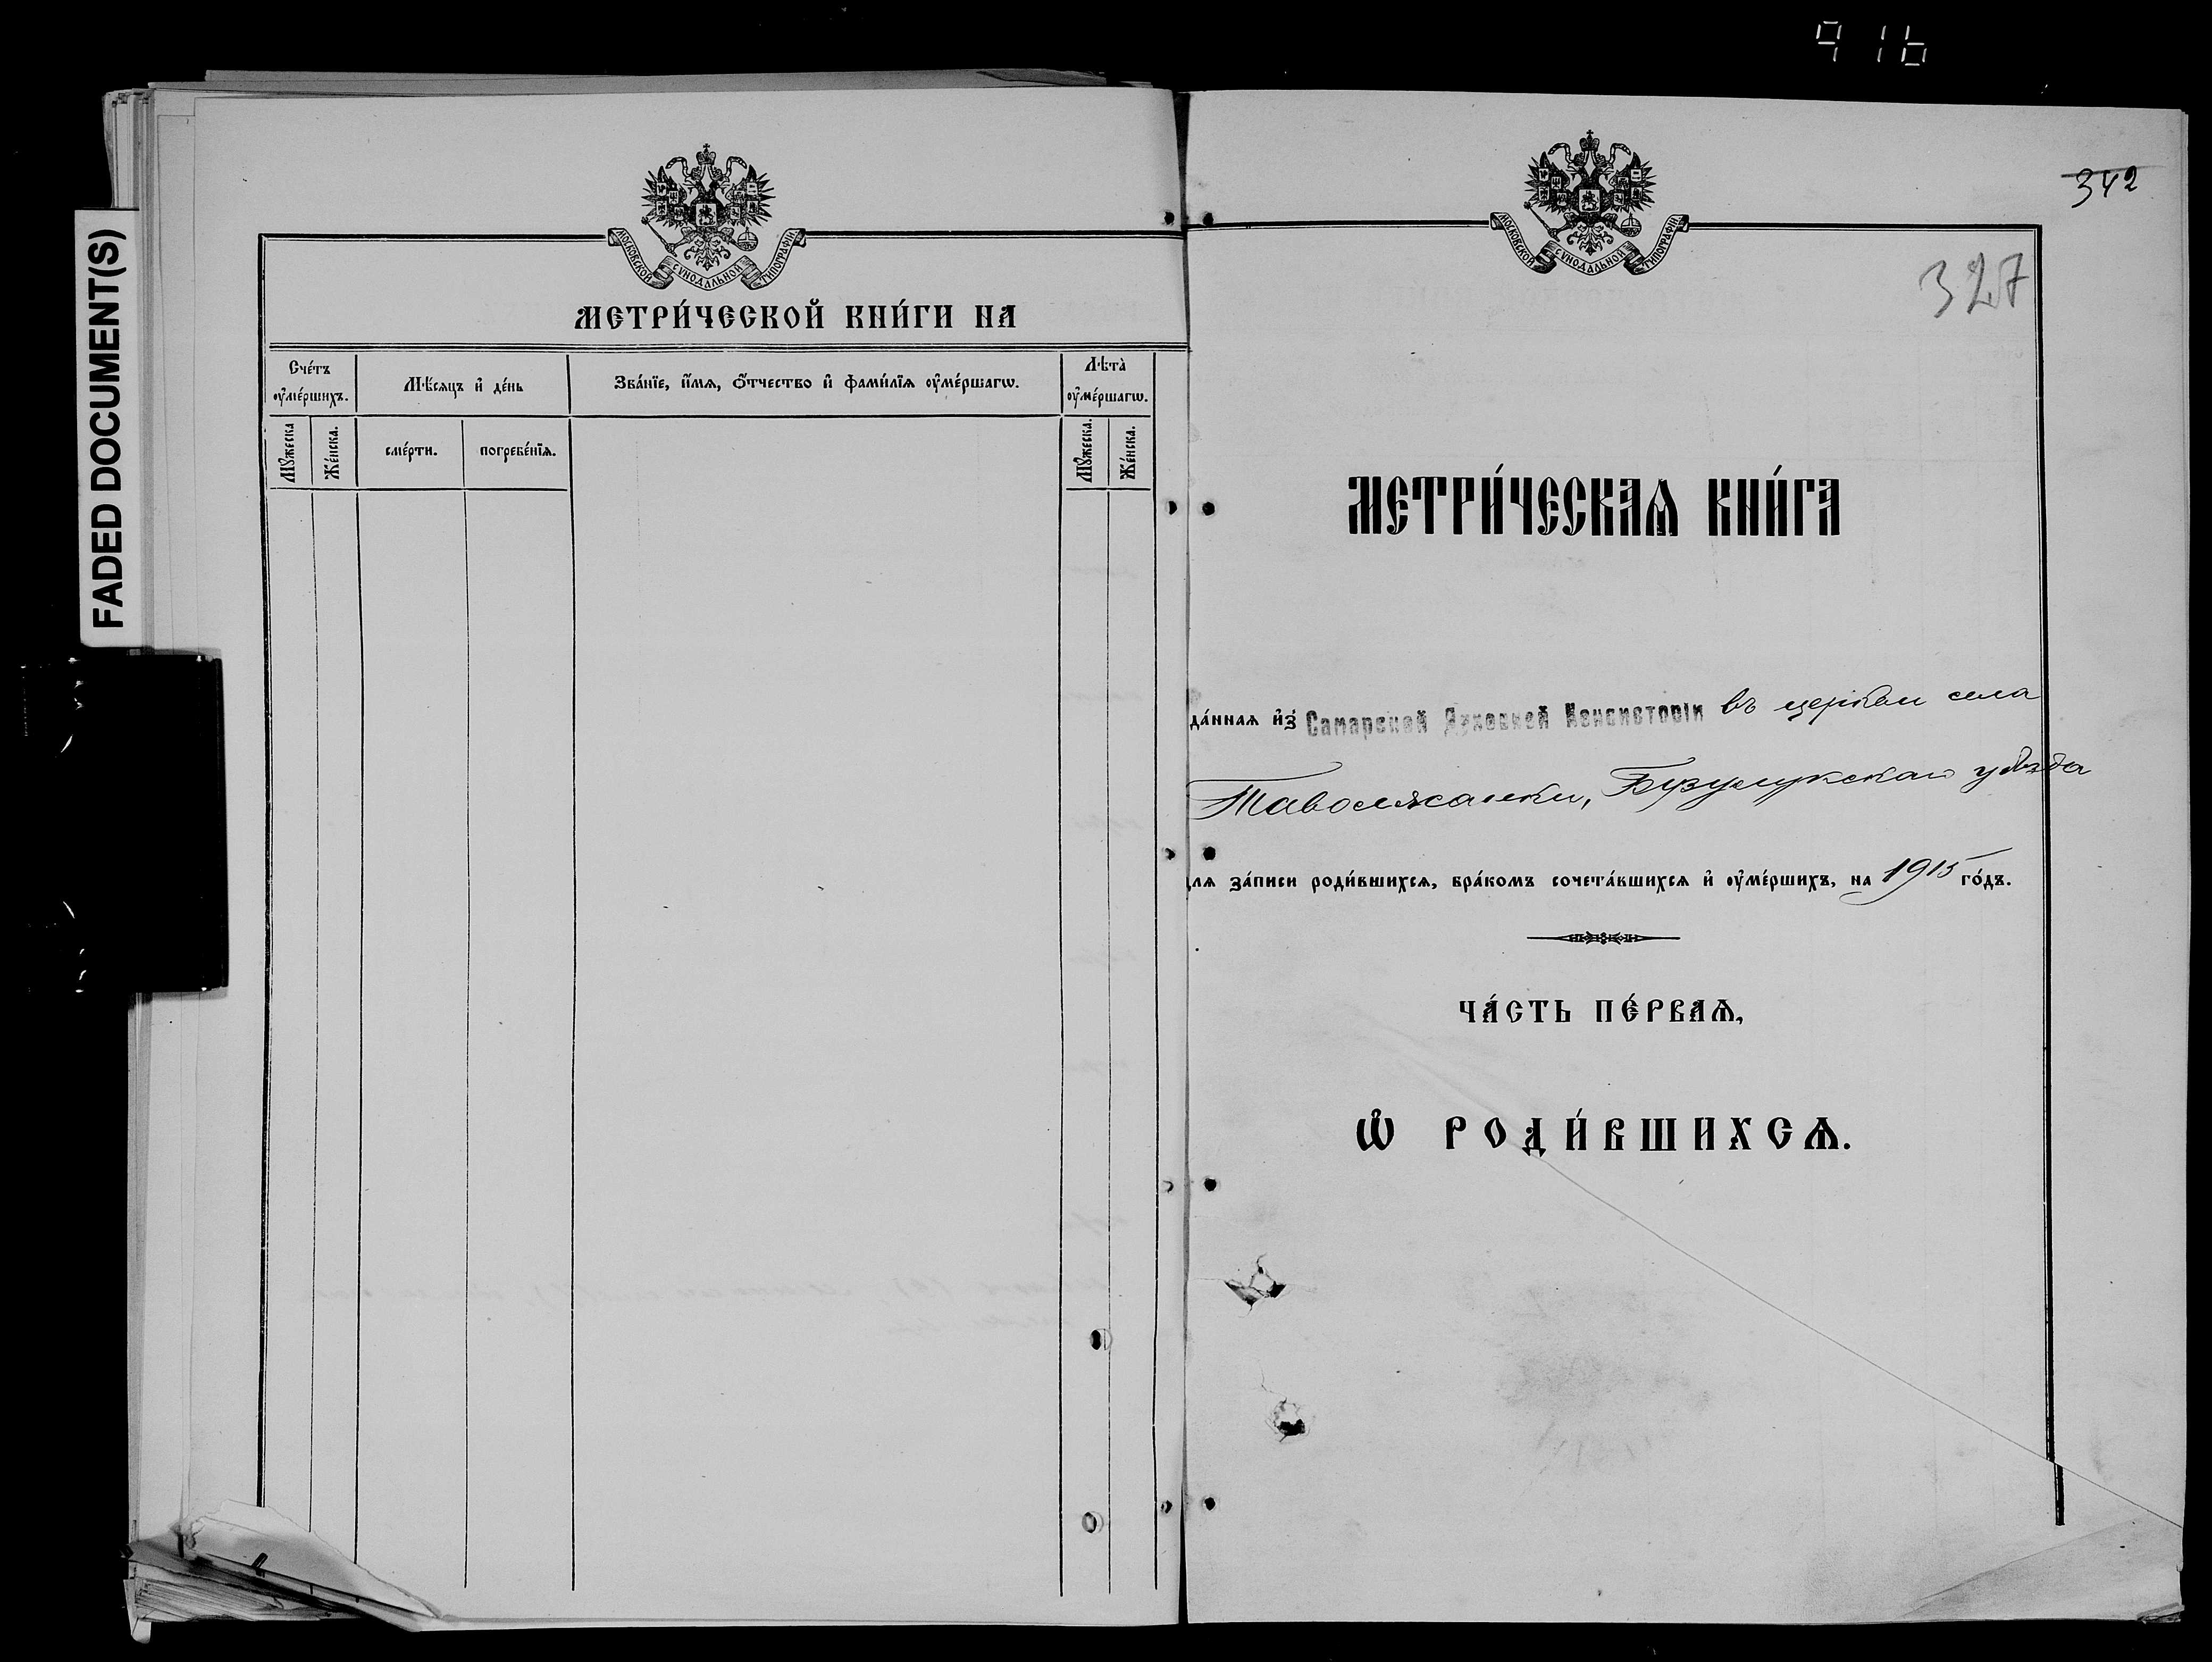 916
FADED DOCUMENT(S)
МОСКОВСКОЙ СѴНОДАЛЬНОЙ ТИПОГРАФІИ
МЕТРИ́ЧЕСКОЙ КНИ́ГИ НА
Сче́тъ ᲂу҆ме́ршихъ.
Мѣ́сяцъ и҆ де́нь
Зва́нїе, и҆́мѧ, ѻ҆́тчество и҆ фами́лїѧ ᲂу҆ме́ршагѡ.
Лѣта̀ ᲂу҆ме́ршагѡ.
Мꙋ́жеска
Же́нска.
сме́рти.
погребе́нїѧ.
Мꙋ́жеска.
Же́нска.
342
МОСКОВСКОЙ СѴНОДАЛЬНОЙ ТИПОГРАФІИ
327
МЕТРИ́ЧЕСКАѦ КНИ́ГА
да́ннаѧ и҆з̾ Самарской Духовной Консисторіи въ церковь села
Таволжанки, Бузулукскаго уѣзда
для за́писи роди́вшихсѧ, бра́комъ сочета́вшихсѧ и҆ ᲂу҆ме́ршихъ, на 1915 го́дъ.
ЧА́СТЬ ПЕ́РВАѦ,
Ѽ РОДИ́ВШИХСѦ.